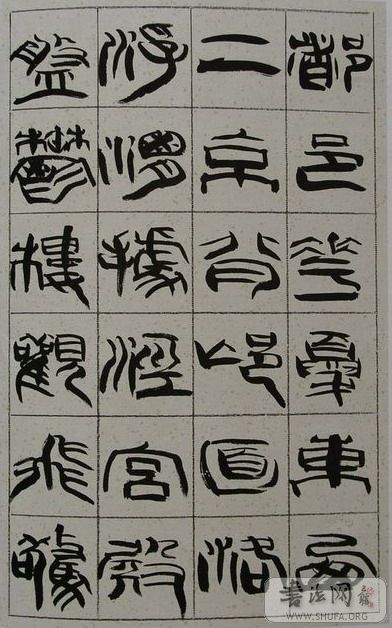 都邑華夏東西
二京背邙面洛
浮渭據涇宮殿
盤鬱樓觀飛驚
書法网
WWW.SHUFA.ORG